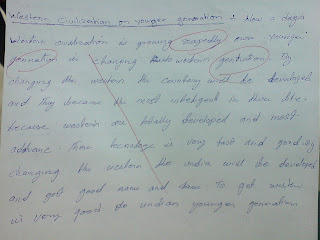 Western Civilization on younger generation : Now a days
Western civilization is growing ragedly over younger
genration is changing into western genituation. By
changing the western the country will be developed
and they became the most inteligent in there life.
because western are totally developed and most
advance. There tecnology is very fast and good. By
changing the western the india will be developed
and get good name and fame To get western
is very good do indian younger generation